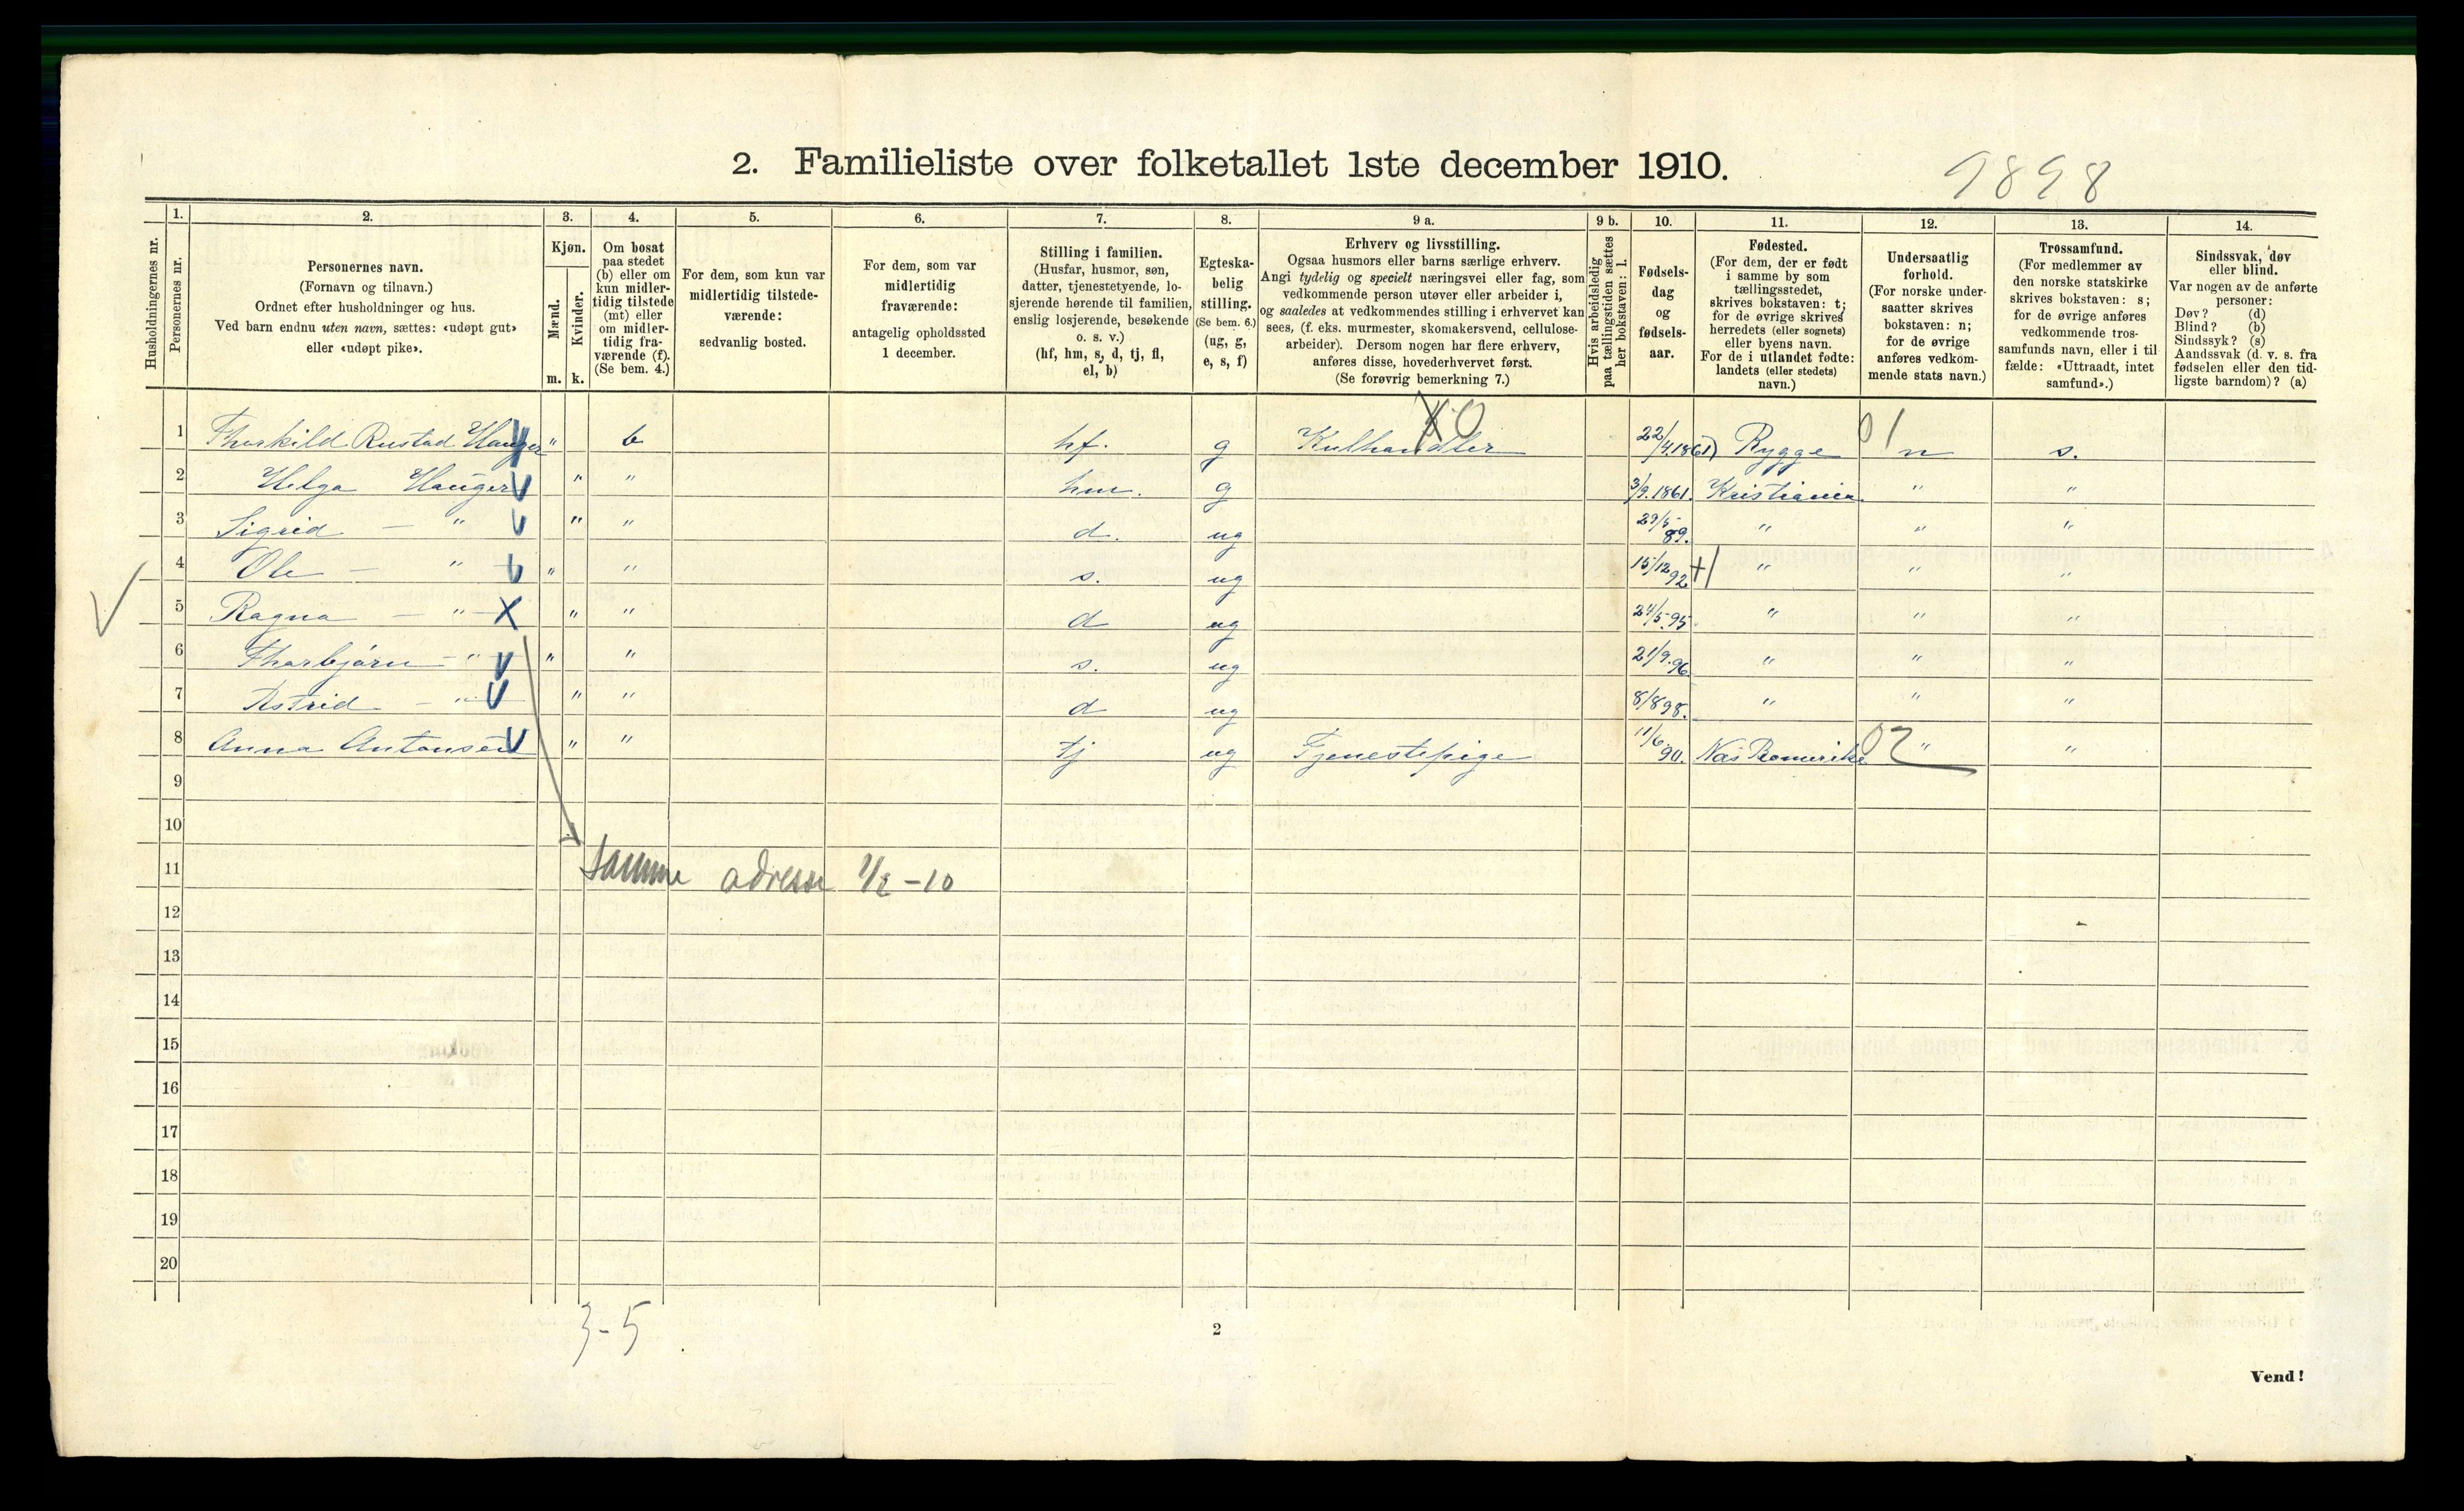 2. Familieliste over folketallet 1ste december 1910.
9898
Husholdningernes nr.
1.
Personernes nr.
2.
Personernes navn.
(Fornavn og tilnavn.)
Ordnet efter husholdninger og hus.
Ved barn endnu uten navn, sættes: «udøpt gut»
eller «udøpt pike».
3.
Kjøn.
Mænd.
Kvinder.
m. k.
4.
Om bosat
paa stedet
(b) eller om
kun midler-
tidig tilstede
(mt) eller
om midler-
tidig fra-
værende (f).
(Se bem. 4.)
5.
For dem, som kun var
midlertidig tilstede-
værende:
sedvanlig bosted.
6.
For dem, som var
midlertidig
fraværende:
antagelig opholdssted
1 december.
7.
Stilling i familien.
(Husfar, husmor, søn,
datter, tjenestetyende, lo-
sjerende hørende til familien,
enslig losjerende, besøkende
o. s. v.)
(hf, hm, s, d, tj, fl,
el, b)
8.
Egteska-
belig
stilling.
(Se bem. 6.)
(ug, g,
e, s, f)
9 a.
Erhverv og livsstilling.
Ogsaa husmors eller barns særlige erhverv.
Angi tydelig og specielt næringsvei eller fag, som
vedkommende person utøver eller arbeider i,
og saaledes at vedkommendes stilling i erhvervet kan
sees, (f. eks. murmester, skomakersvend, cellulose-
arbeider). Dersom nogen har flere erhverv,
anføres disse, hovederhvervet først.
(Se forøvrig bemerkning 7.)
9 b.
Hvis arbeidsledig
paa tællingstiden sættes
her bokstaven: l.
10.
Fødsels-
dag
og
fødsels-
aar.
11.
Fødested.
(For dem, der er født
i samme by som
tællingsstedet,
skrives bokstaven: t;
for de øvrige skrives
herredets (eller sognets)
eller byens navn.
For de i utlandet fødte:
landets (eller stedets)
navn.)
12.
Undersaatlig
forhold.
(For norske under-
saatter skrives
bokstaven: n;
for de øvrige
anføres vedkom-
mende stats navn.)
13.
Trossamfund.
(For medlemmer av
den norske statskirke
skrives bokstaven: s;
for de øvrige anføres
vedkommende tros-
samfunds navn, eller i til
fælde: «Uttraadt, intet
samfund».)
14.
Sindssvak, døv
eller blind.
Var nogen av de anførte
personer:
Døv? (d)
Blind? (b)
Sindssyk? (s)
Aandssvak (d. v. s. fra
fødselen eller den tid-
ligste barndom)? (a)
1 Thorkild Rustad Hauger " b hf. g Kulhandler 22/4.1861 Rygge 01 n s.
2 Helga Hauger " " hm. g 3/9.1861. Kristiania " "
3 Sigrid — " " " d. ug 29/5 89. " " "
4 Ole — " " " s. ug 15/12 92 " " "
5 Ragna — " " " d ug 24/5.95 " " "
6 Thorbjørn — " " " s. ug 21/9.96 " " "
7 Astrid — " " " d ug 8/8 98. " " "
8 Anna Antonsen " " tj ug Tjenestepige 11/6 90. Næs Romerike 02 " "
9
10
11 samme adresse 1/2 – 10
12
13
14
15
16
17
18
19
20
3-5
2
Vend!